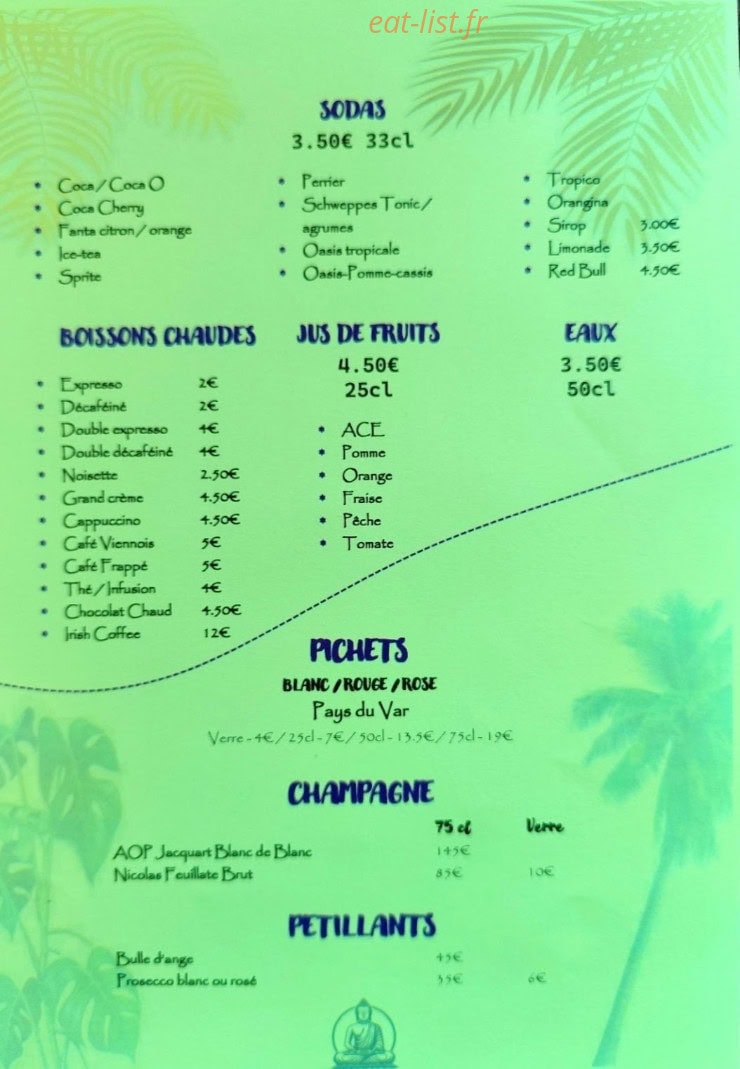 eat-list.fr
SODAS
3.50€ 33cl
• Coca / Coca O
• Coca Cherry
• Fanta citron / orange
• Ice-tea
• Sprite
• Perrier
• Schweppes Tonic /
agrumes
• Oasis tropicale
• Oasis-Pomme-cassis
• Tropico
• Orangina
• Sirop 3.00€
• Limonade 3.50€
• Red Bull 4.50€
BOISSONS CHAUDES
• Expresso 2€
• Décaféiné 2€
• Double expresso 4€
• Double décaféiné 4€
• Noisette 2.50€
• Grand crème 4.50€
• Cappuccino 4.50€
• Café Viennois 5€
• Café Frappé 5€
• Thé / Infusion 4€
• Chocolat Chaud 4.50€
• Irish Coffee 12€
JUS DE FRUITS
4.50€
25cl
• ACE
• Pomme
• Orange
• Fraise
• Pêche
• Tomate
EAUX
3.50€
50cl
PICHETS
BLANC / ROUGE / ROSE
Pays du Var
Verre - 4€ / 25cl - 7€ / 50cl - 13.5€ / 75cl - 19€
CHAMPAGNE
75 cl Verre
AOP Jacquart Blanc de Blanc 145€
Nicolas Feuillate Brut 85€ 10€
PETILLANTS
Bulle d'ange 45€
Prosecco blanc ou rosé 35€ 6€